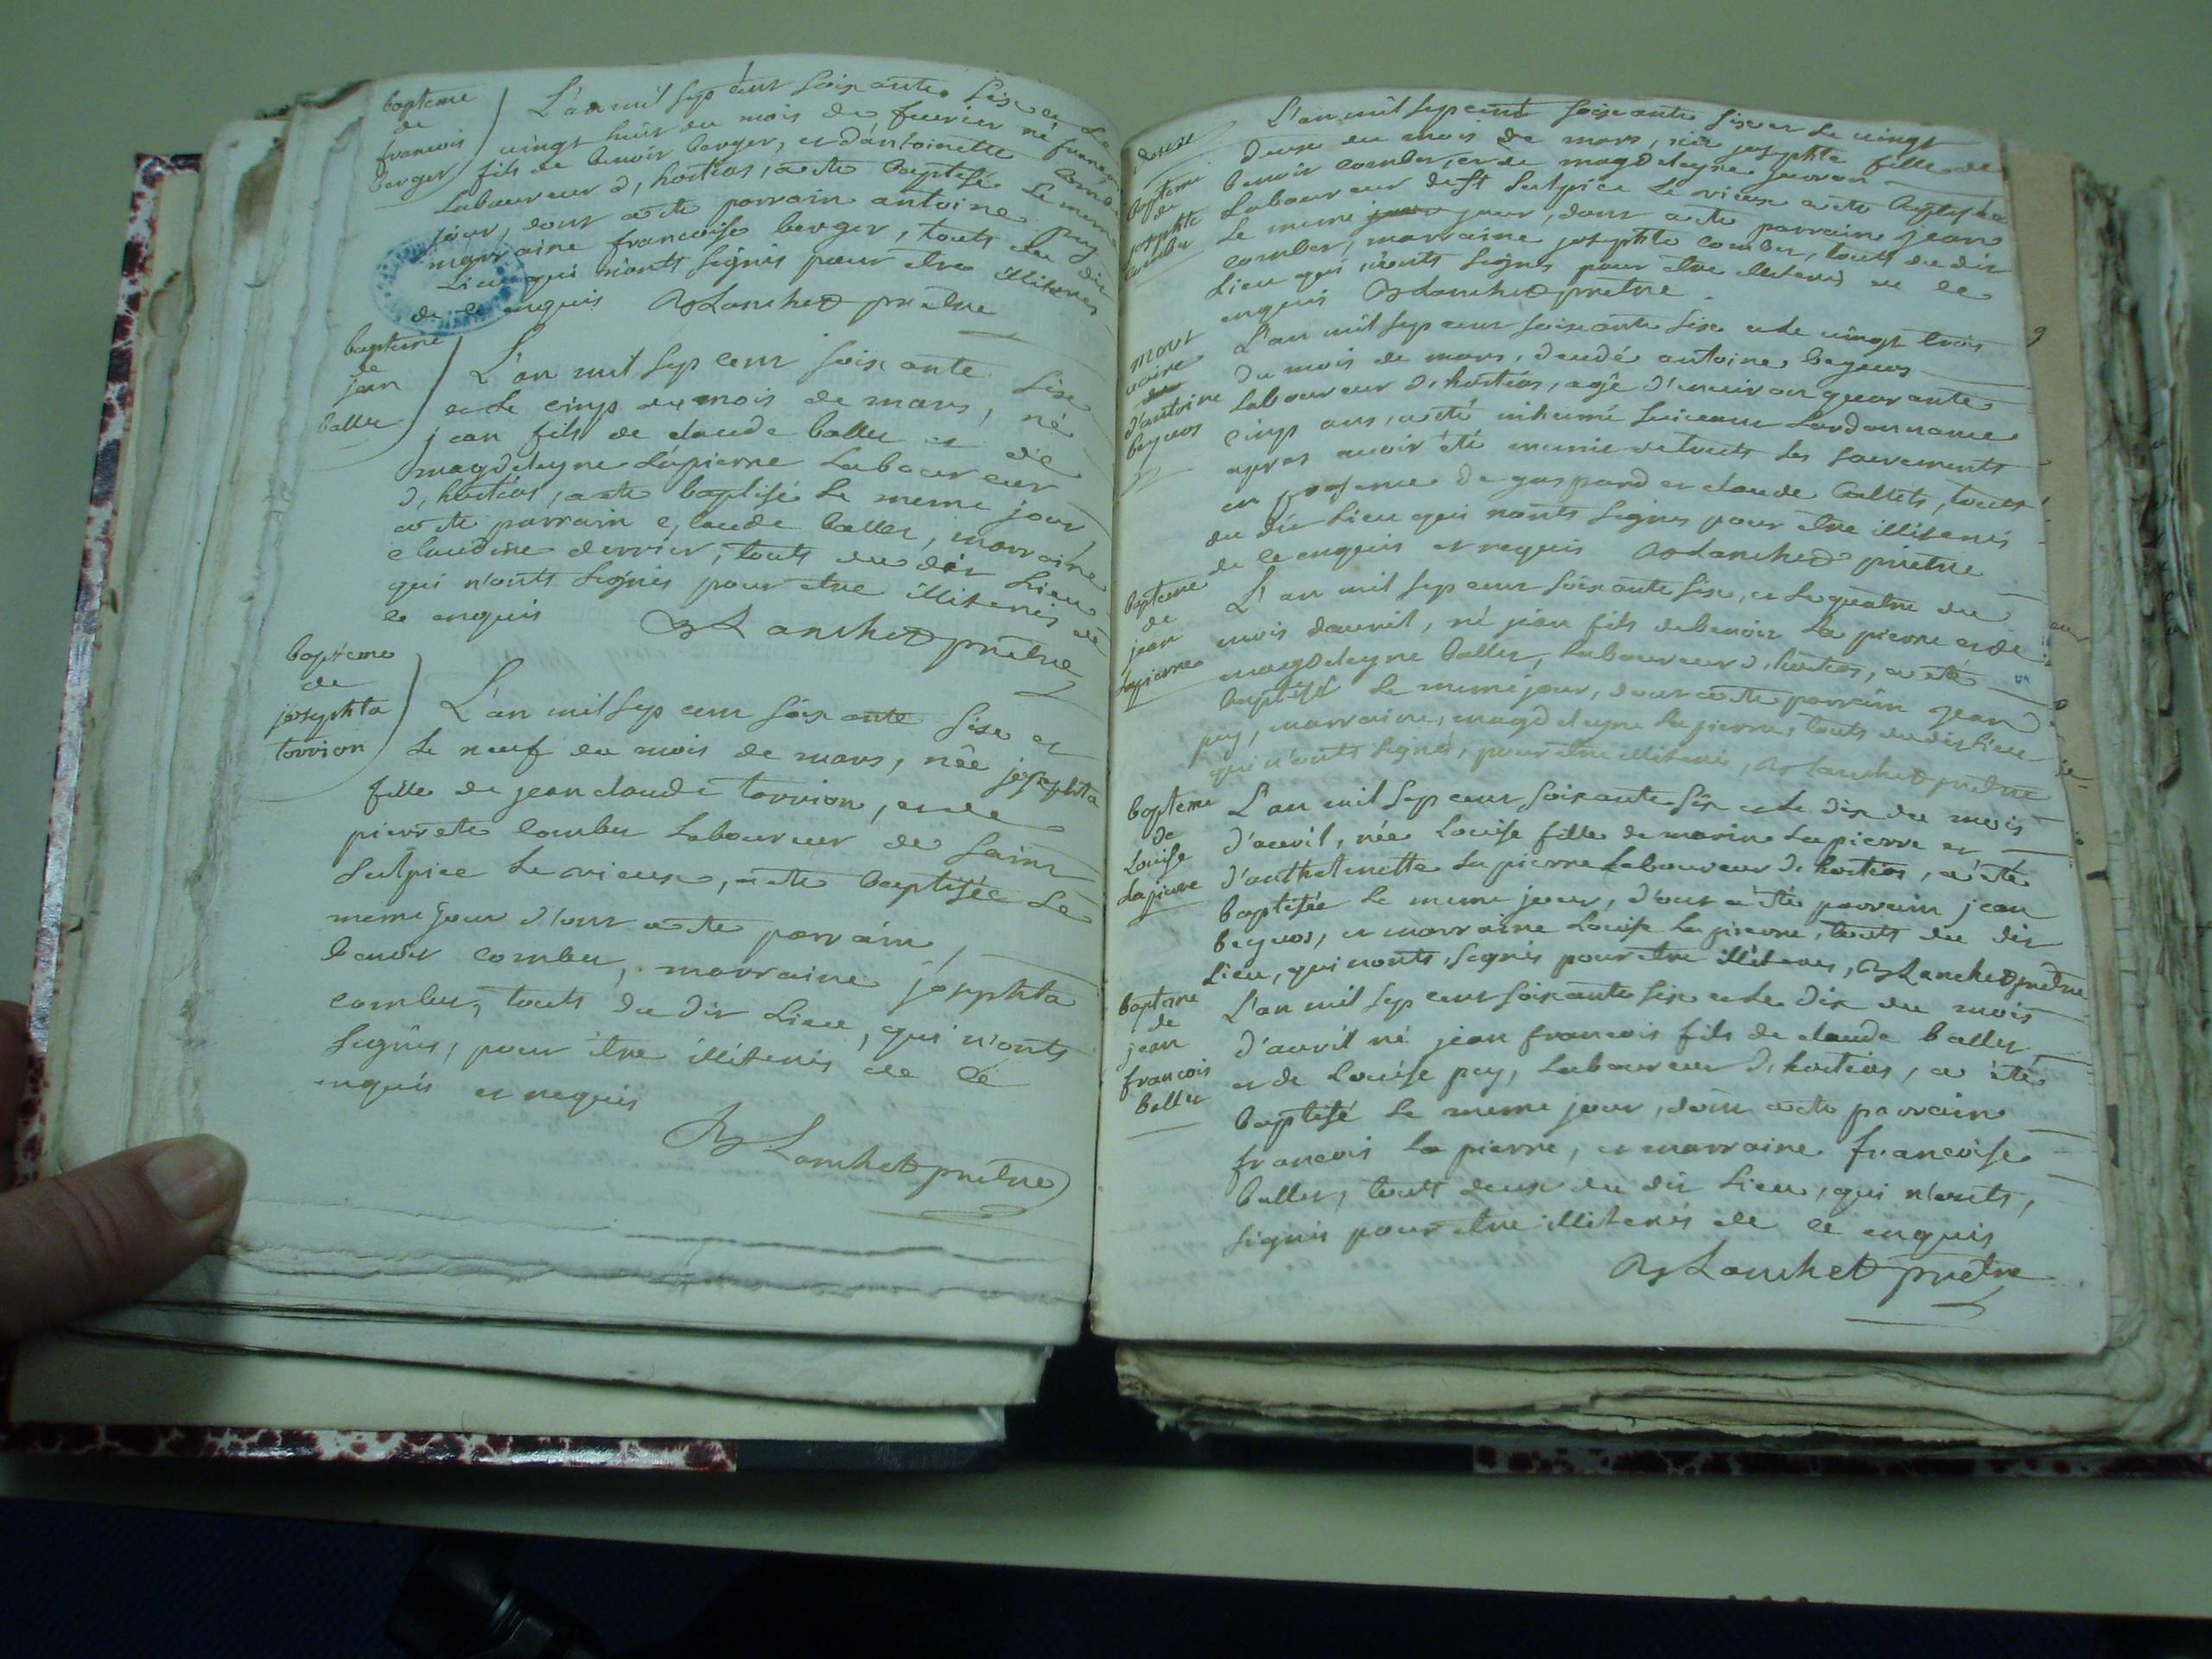 bapteme
de
francois
berger
L'an mil sep cent soixante six et le
vingt huit du mois de fuerier né françois
fils de benoir berger, et d'antoinette
Laboureur d, hostias, a ete baptisé Le meme
jour, dont a ete parrain antoine puy
marraine francoise berger, touts du dit
Lieu qui n'onts signes pour etre illiterés
de ce enquis Lanchet pretre
bapteme
de
jean
ballet
L'an mil sep cent soixante six
et le cinq du mois de mars, né
jean fils de claude ballet et de
magdeleyne Lapierre Laboureur
d, hostias, a ete baptisé Le meme jour,
a ete parrain claude ballet, marraine
claudine derrier, touts du dit Lieu
qui n'onts signés pour etre illiterés de
ce enquis
Lanchet pretre
bapteme
de
josephta
torrion
L'an mil sep cent soixante six et
Le neuf du mois de mars, née josephta
fille de jean claude torrion, et de
pierrete combet Laboureur de saint
sulpice Le vieux, a ete baptisée Le
meme jour d'ont a ete parrain,
benoit combet, marraine josephta
combet, touts du dit Lieu, qui n'onts
signés, pour être illiterés de ce
enquis et requis
Lanchet pretre
bapteme
de
josephte
combet
L'an mil sep cent soixante six et le vingt
deux du mois de mars, née josephte fille de
benoir combet, et de magdeleyne
Laboureur de st sulpice Le vieux a ete baptisée
Le meme jour jour, dont a ete parrain jean
combet, marraine josephte combet, touts du dit
Lieu qui n'onts signes pour etre illiterés de ce
enquis Lanchet pretre
mort
uaire
d'antoine
beguos
L'an mil sep cent soixante six et le vingt trois
du mois de mars, decedé antoine beguos
Laboureur d, hostias, agé d'enuiron quarante
cinq ans, a eté inhumé suivant Lordonnance
apres avoir été munis de touts les sacrements
en presence de gaspard et claude ballets, touts
du dit Lieu qui nonts signes pour etre illiterés
de ce enquis et requis Lanchet prietre
bapteme
de
jean
Lapierre
L'an mil sep cent soixante six, et le quatre du
mois dauril, né jean fils de benoir La pierre et de
magdeleyne ballet, Laboureur d, hostias, a eté
baptisé Le meme jour, dont a ete parrain jean
puy, marraine, magdeleyne La pierre, touts du dit Lieu
qui n'onts signés, pour etre illiterés, Lanchet pretre
bapteme
de
Louise
Lapierre
L'an mil sep cent soixante six et le dix du mois
d'auril, née Louise fille de marin Lapierre et
d'anthelmette Lapierre Laboureur d, hostias, a été
baptisée Le meme jour, d'ont a été parrain jean
beguos, et marraine Louise La pierre, touts du dit
Lieu, qui nonts signés pour etre illiterés, Lanchet pretre
bapteme
de
jean
francois
ballet
L'an mil sep cent soixante six et le dix du mois
d'auril né jean francois fils de claude ballet
et de Louise puy, Laboureur d, hostias, a été
baptisé Le meme jour, dont a ete parrain
francois La pierre, et marraine francoise
ballet, tout deux du dit Lieu, qui n'onts,
signés pour etre illiterés de ce enquis
Lanchet pretre